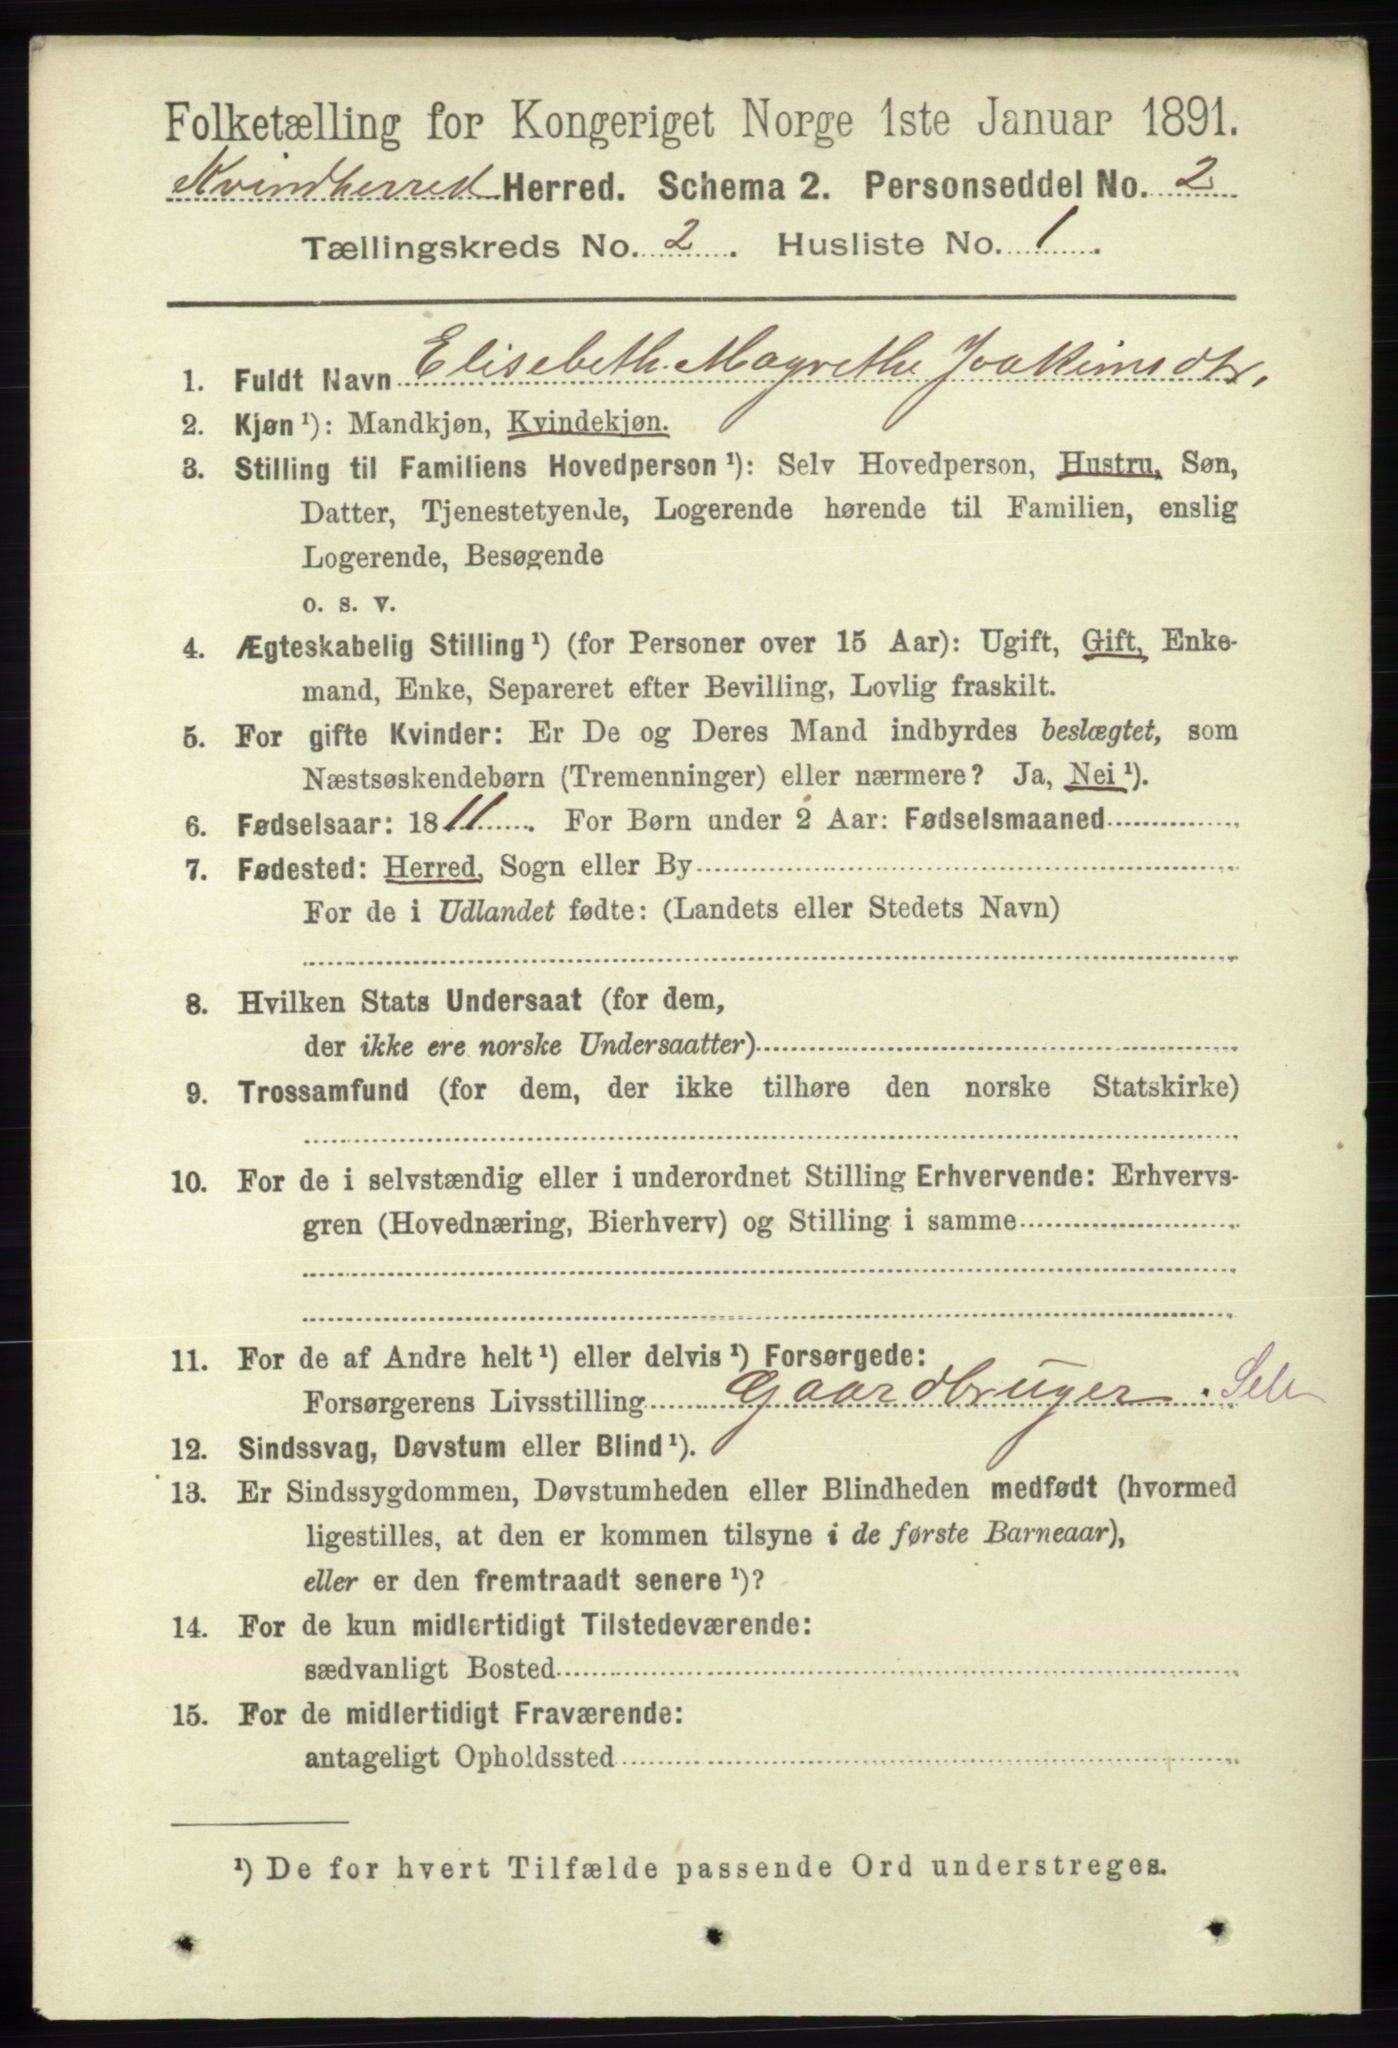 Folketælling for Kongeriget Norge 1ste Januar 1891.
Kvindherred Herred. Schema 2. Personseddel No. 2
Tællingskreds No. 2. Husliste No. 1.
1. Fuldt Navn Elisebeth Magrethe Joakimsdtr.
2. Kjøn ¹): Mandkjøn, Kvindekjøn.
3. Stilling til Familiens Hovedperson ¹): Selv Hovedperson, Hustru, Søn,
Datter, Tjenestetyende, Logerende hørende til Familien, enslig
Logerende, Besøgende
o. s. v.
4. Ægteskabelig Stilling ¹) (for Personer over 15 Aar): Ugift, Gift, Enke-
mand, Enke, Separeret efter Bevilling, Lovlig fraskilt.
5. For gifte Kvinder: Er De og Deres Mand indbyrdes beslægtet, som
Næstsøskendebørn (Tremenninger) eller nærmere? Ja, Nei ¹).
6. Fødselsaar: 1811. For Børn under 2 Aar: Fødselsmaaned
7. Fødested: Herred, Sogn eller By
For de i Udlandet fødte: (Landets eller Stedets Navn)
8. Hvilken Stats Undersaat (for dem,
der ikke ere norske Undersaatter)
9. Trossamfund (for dem, der ikke tilhøre den norske Statskirke)
10. For de i selvstændig eller i underordnet Stilling Erhvervende: Erhvervs-
gren (Hovednæring, Bierhverv) og Stilling i samme
11. For de af Andre helt ¹) eller delvis ¹) Forsørgede:
Forsørgerens Livsstilling Gaardbruger.
12. Sindssvag, Døvstum eller Blind ¹).
13. Er Sindssygdommen, Døvstumheden eller Blindheden medfødt (hvormed
ligestilles, at den er kommen tilsyne i de første Barneaar),
eller er den fremtraadt senere ¹)?
14. For de kun midlertidigt Tilstedeværende:
sædvanligt Bosted
15. For de midlertidigt Fraværende:
antageligt Opholdssted
¹) De for hvert Tilfælde passende Ord understreges.